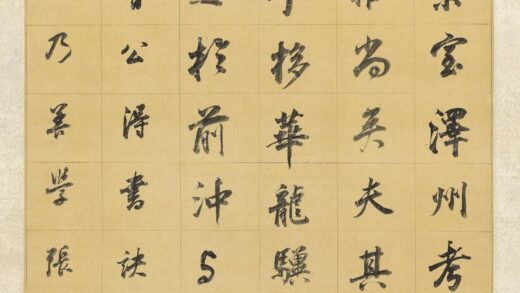 室澤州考
尚矣夫其
移華龍驥
於前沖与
公得書訣
乃善学張